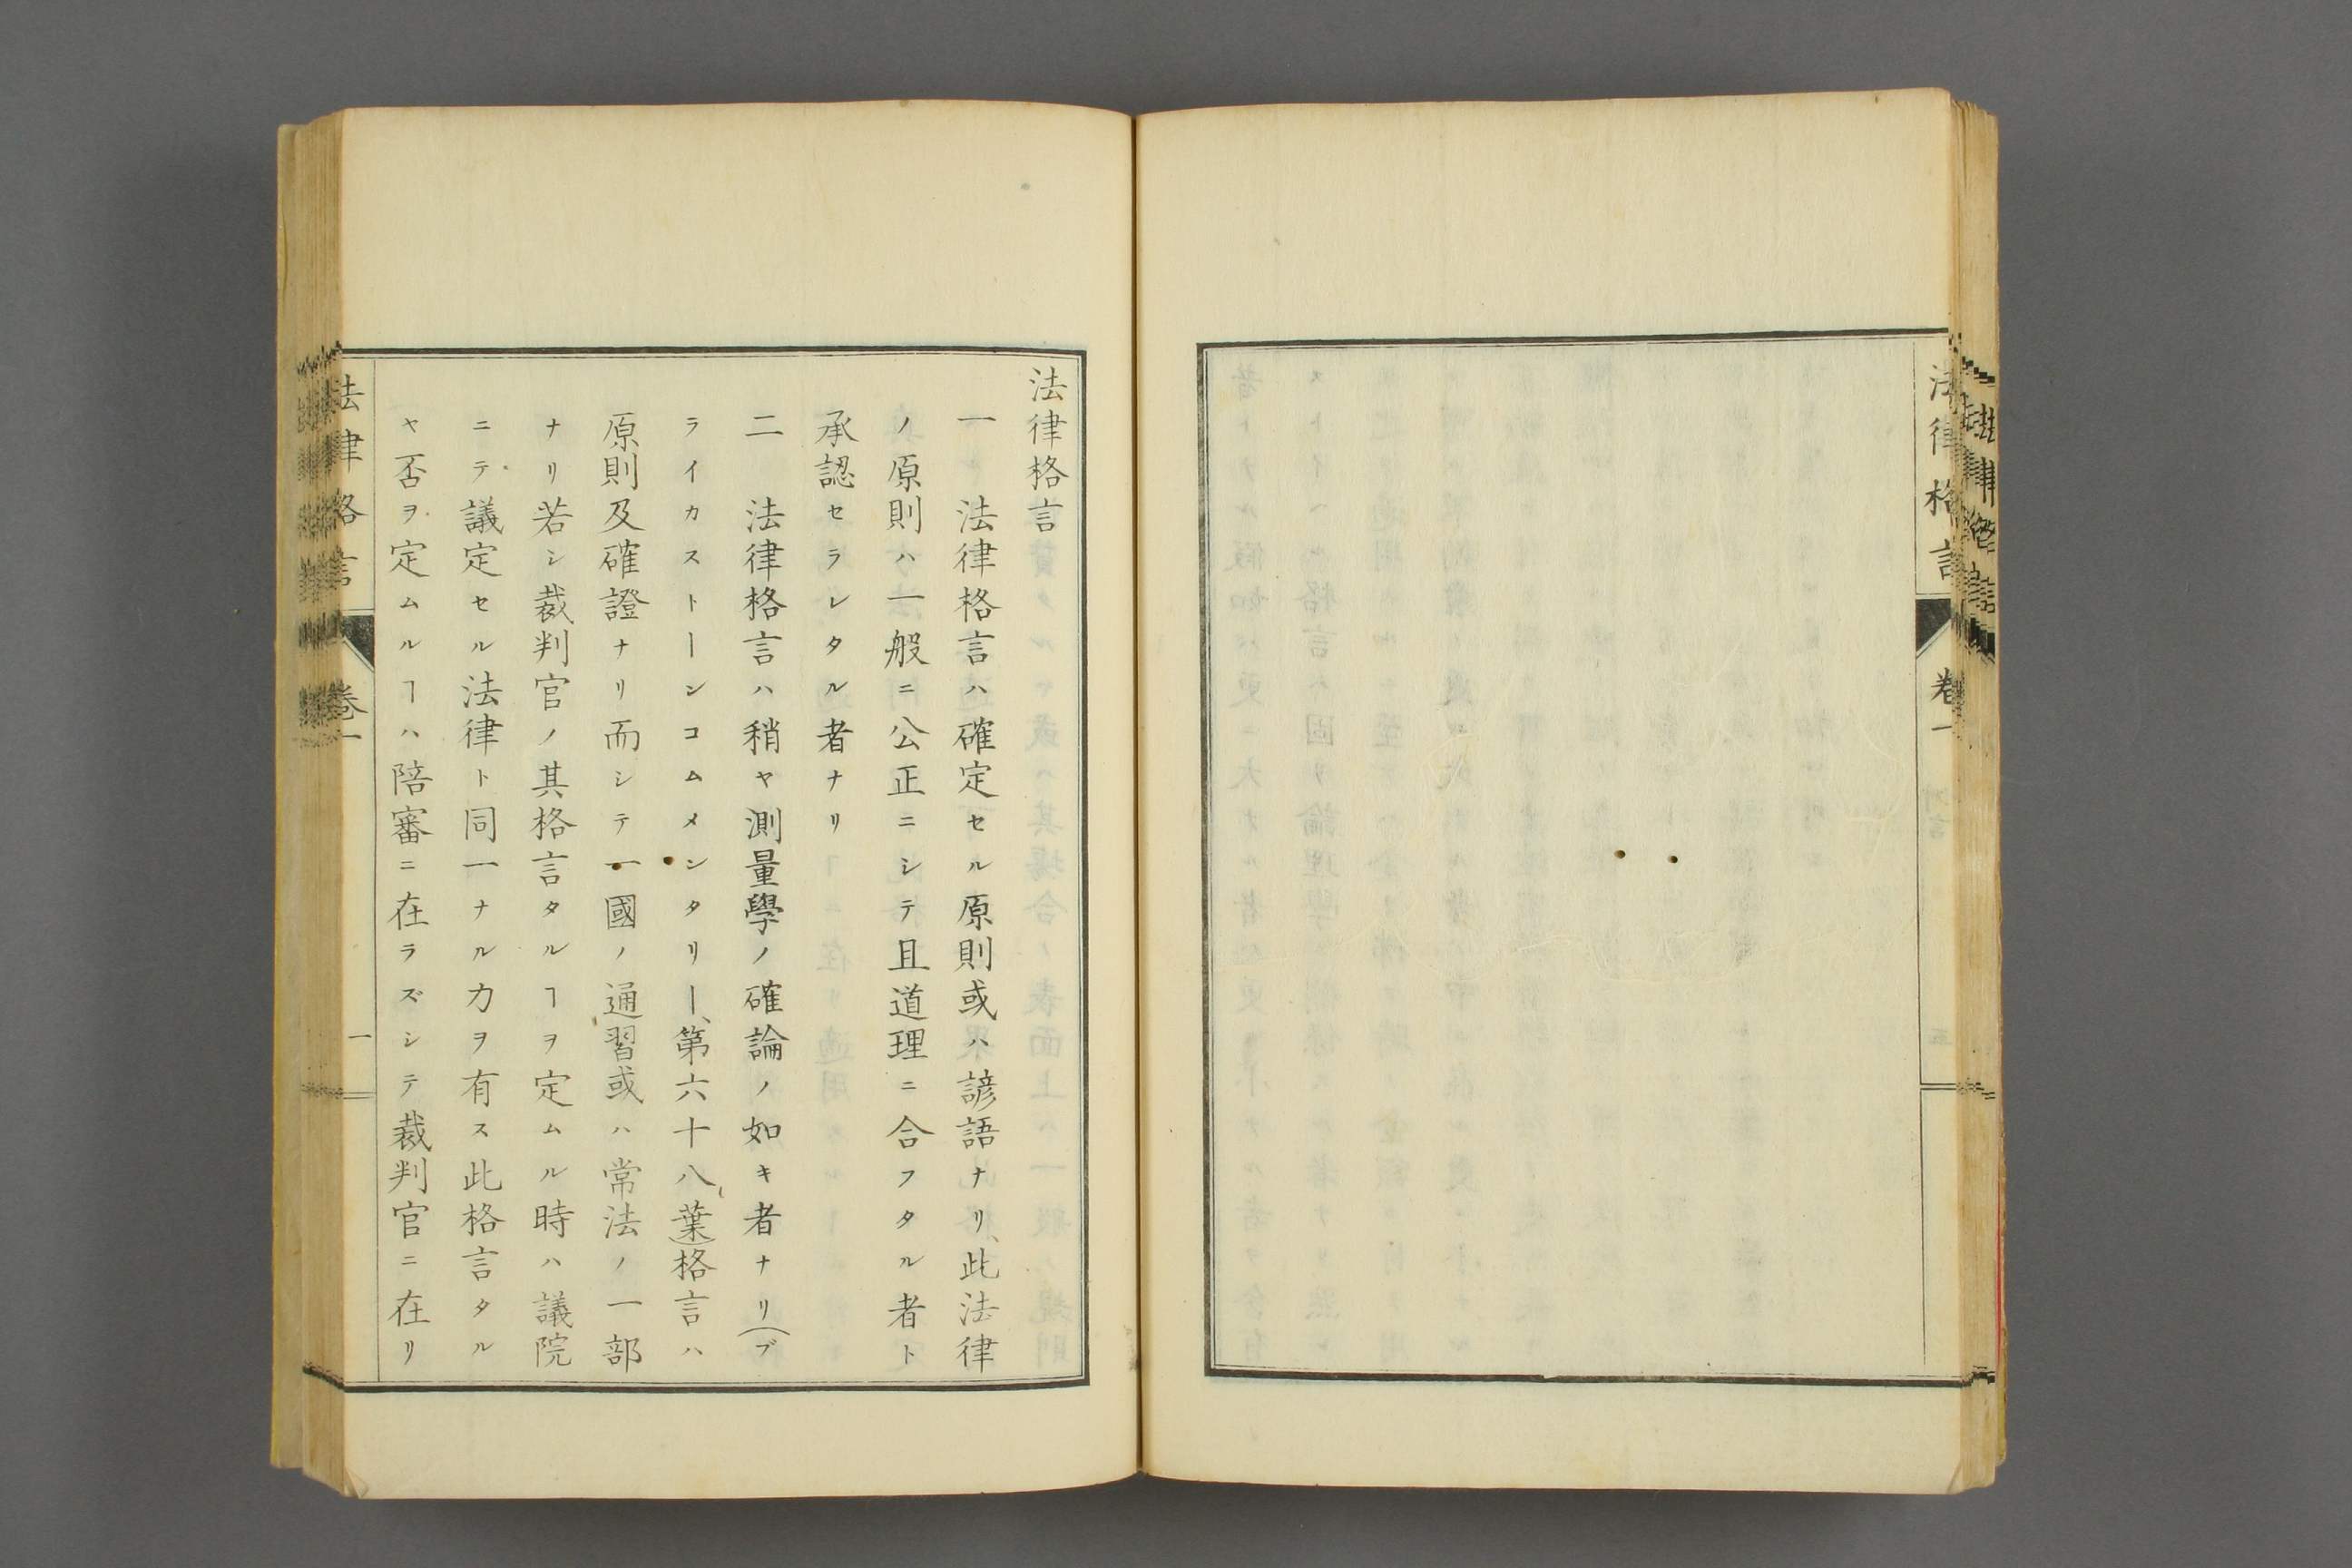 法律格言
卷一
法律格言
一 法律格言ハ確定セル原則或ハ諺語ナリ、此法律
ノ原則ハ一般ニ公正ニシテ且道理ニ合フタル者ト
承認セラレタル者ナリ
二 法律格言ハ稍ヤ測量學ノ確論ノ如キ者ナリ(ブ
ライカストーンコムメンタリー、第六十八葉)格言ハ
原則及確證ナリ而シテ一國ノ通習或ハ常法ノ一部
ナリ若シ裁判官ノ其格言タルヿヲ定ムル時ハ議院
ニテ議定セル法律ト同一ナル力ヲ有ス此格言タル
ヤ否ヲ定ムルヿハ陪審ニ在ラズシテ裁判官ニ在リ
法律格言
卷一
一